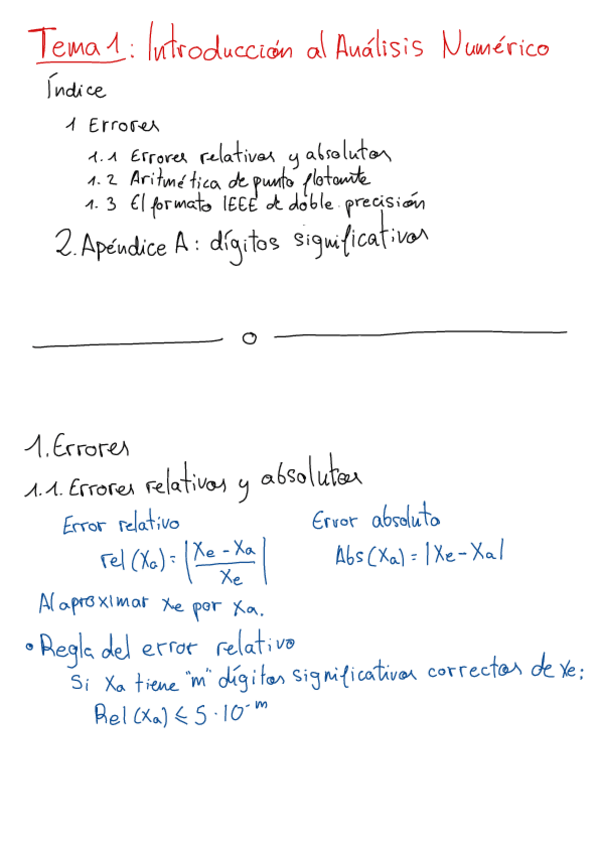 Tema 1: Introducción al Análisis Numérico
Índice
1 Errores
1.1 Errores relativos y absolutos
1.2 Aritmética de punto flotante
1.3 El formato IEEE de doble precisión
2. Apéndice A: dígitos significativos
1. Errores
1.1. Errores relativos y absolutos
Error relativo Error absoluto
rel (Xa) = |Xe - Xa / Xe| Abs (Xa) = |Xe - Xa|
Al aproximar Xe por Xa.
• Regla del error relativo
Si Xa tiene "m" dígitos significativos correctos de Xe:
Rel (Xa) ≤ 5·10^-m